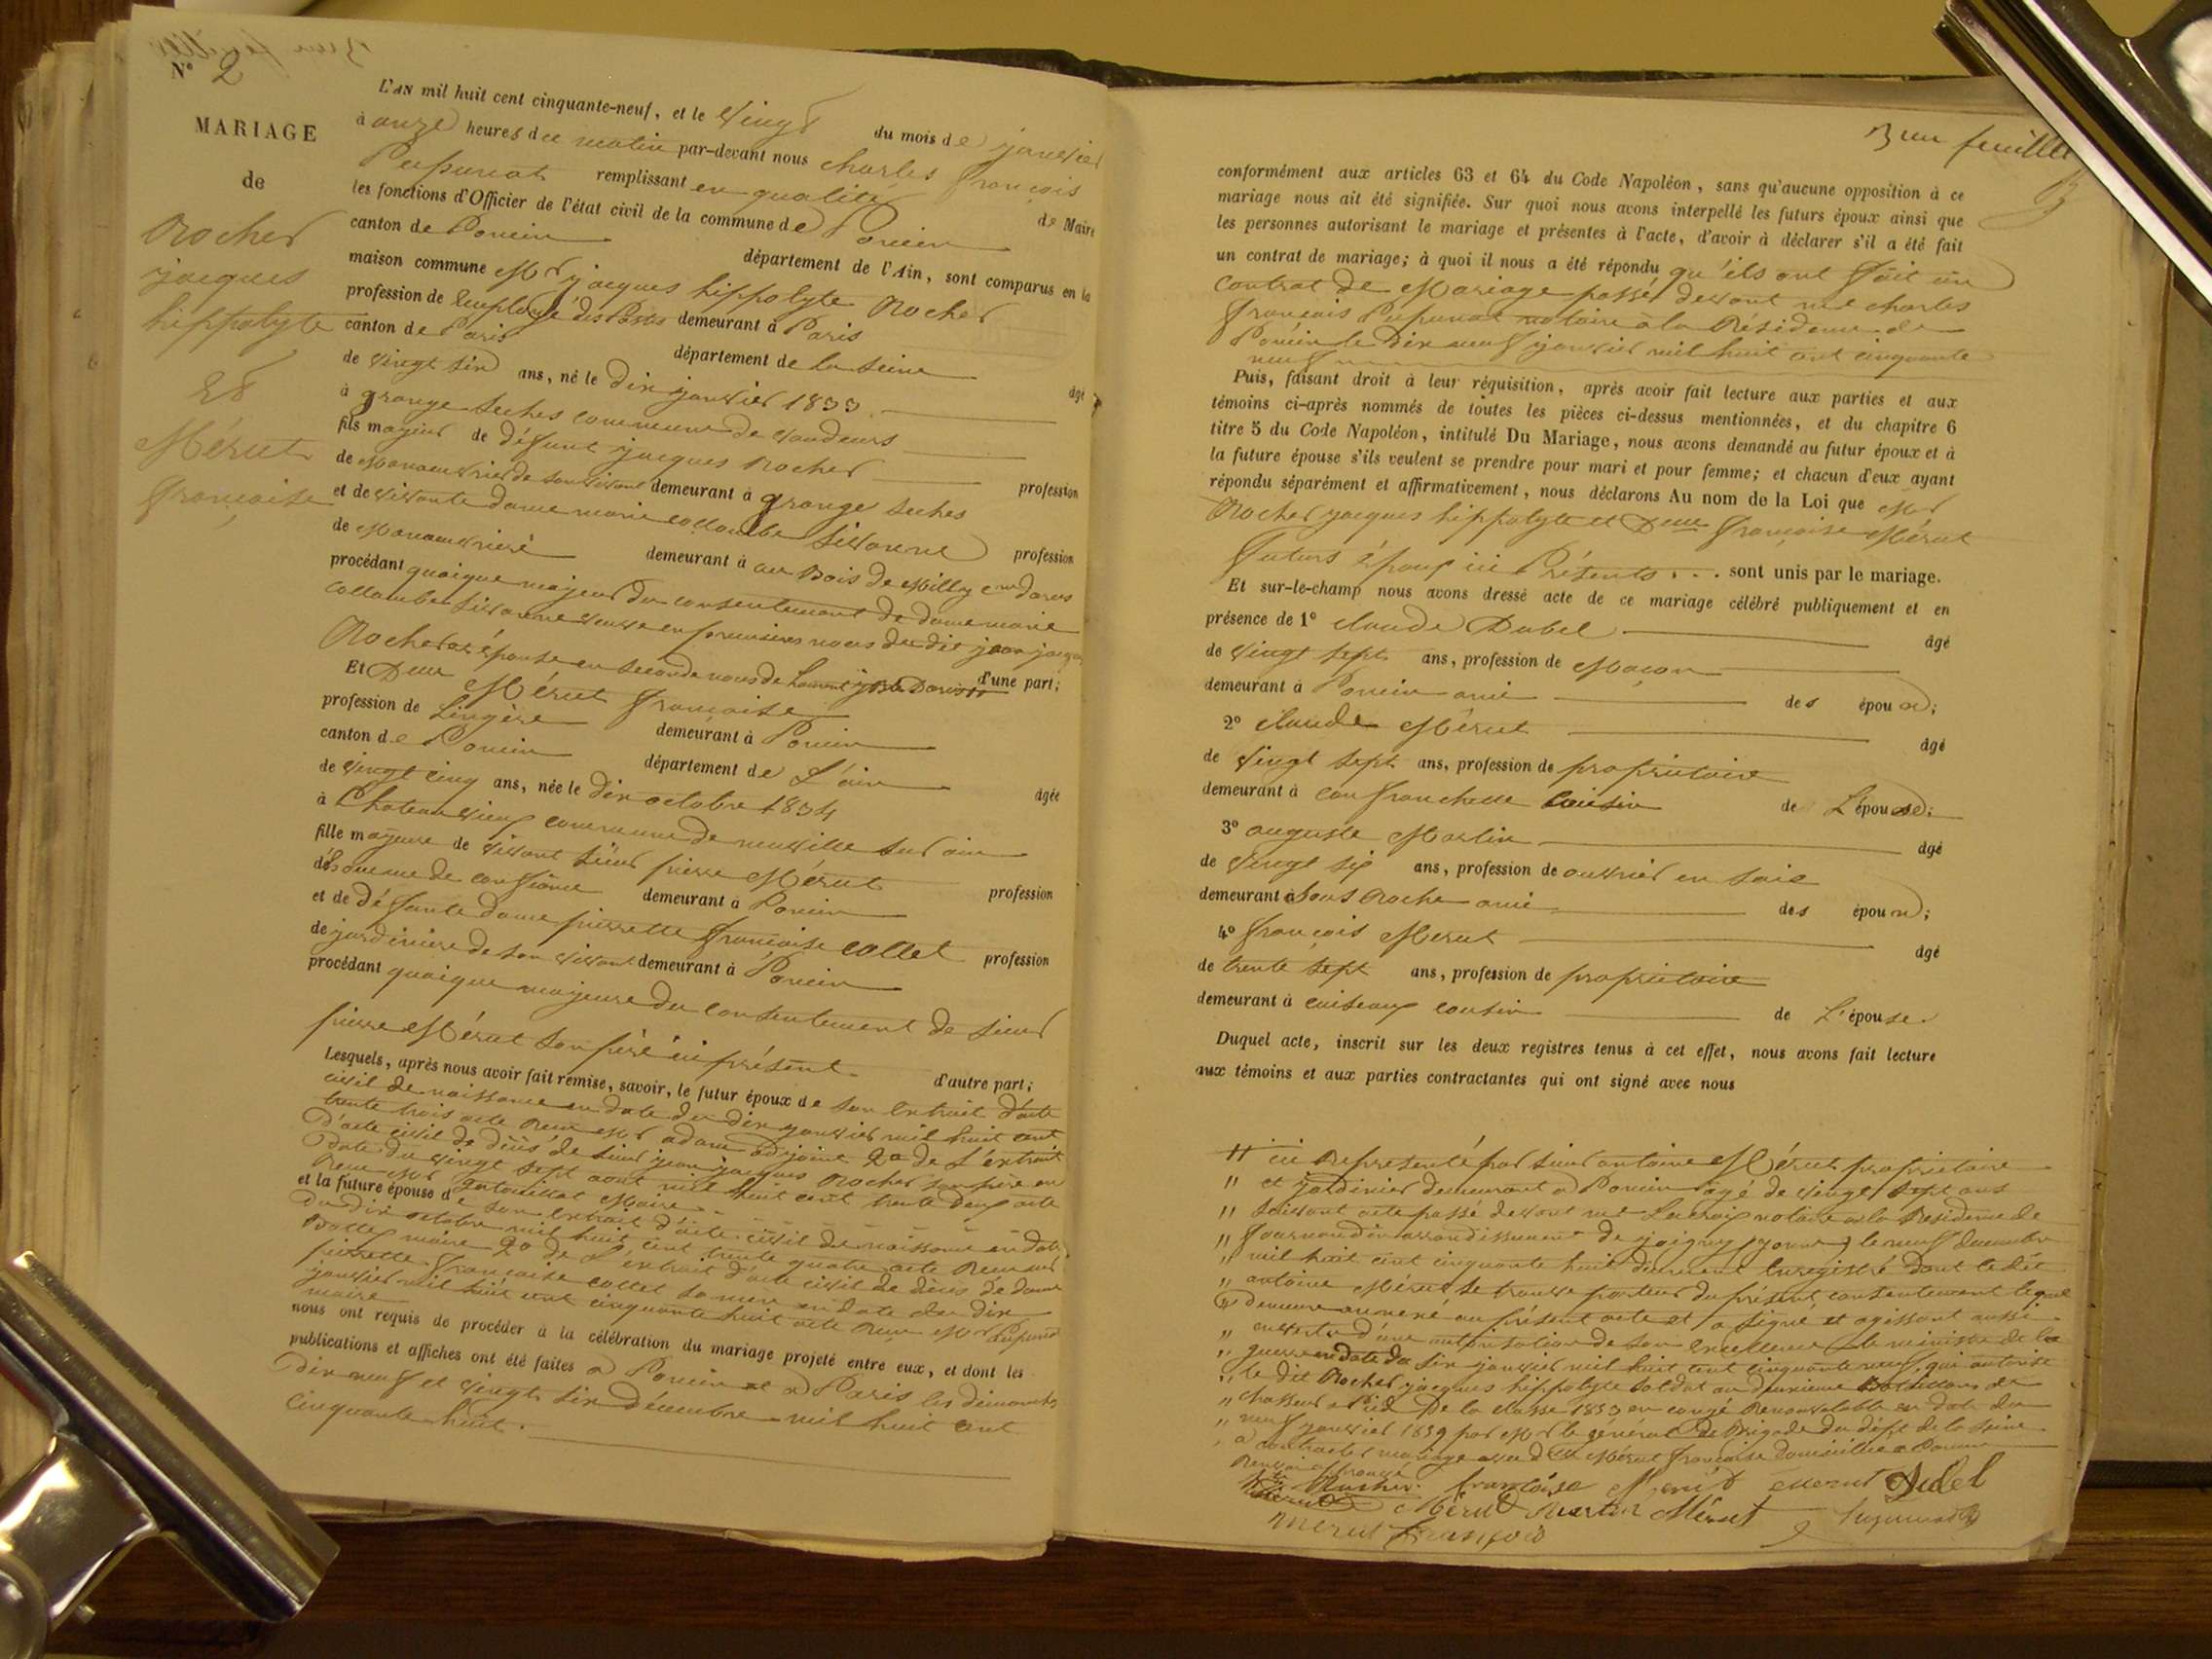 N° 2
MARIAGE
de
Rocher
jacques
hippolyte
Et
Mérut
françoise
L'AN mil huit cent cinquante-neuf, et le Vingt du mois de janvier
à onze heures du matin par-devant nous charles françois
Pupunat remplissant en qualité de Maire
les fonctions d'Officier de l'état civil de la commune de Poncin
canton de Poncin département de l'Ain, sont comparus en la
maison commune Mr jacques hippolyte Rocher
profession de Employé des Postes demeurant à Paris
canton de Paris département de la Seine âgé
de vingt six ans, né le Dix janvier 1833
à grange seches commune de vaudeurs
fils majeur de défunt jacques Rocher profession
de Manoeuvrier de son vivant demeurant à grange seches
et de vivante dame marie collombe Sivanne profession
de Manoeuvriere demeurant à au Bois de Milly
procédant quoique majeur du consentement de dame marie
collombe Sivanne veuve en premieres noces du dit jean jacques
Rocher et épouse en seconde noces de d'une part;
Et Delle Mérut françoise
profession de Lingère demeurant à Poncin
canton de Poncin département de L'ain âgée
de vingt cinq ans, née le dix octobre 1834
à Chateauvieux commune de neuville sur ain
fille majeure de vivant sieur pierre Mérut profession
d'homme de confiance demeurant à Poncin
et de défunte dame pierrette françoise collet profession
de jardiniere de son vivant demeurant à Poncin
procédant quoique majeure du consentement de sieur
pierre Mérut son père ici présent d'autre part;
Lesquels, après nous avoir fait remise, savoir, le futur époux de son Extrait d'acte
civil de naissance en date du dix janvier mil huit cent
trente trois acte Reçu Mr adam adjoint 2° de L'extrait
d'acte civil de décès de sieur jean jacques Rocher son père en
date du vingt sept aout mil huit cent trente deux acte
Reçu Mr Maire
et la future épouse de son Extrait d'acte civil de naissance en date
du dix octobre mil huit cent trente quatre acte Reçu Mr
maire 2° de L'extrait d'acte civil de décès de dame
pierrette françoise collet sa mere en date du dix
janvier mil huit cent cinquante huit acte Reçu Mr Pupunat
maire
nous ont requis de procéder à la célébration du mariage projeté entre eux, et dont les
publications et affiches ont été faites à Poncin et à Paris les dimanches
Dix neuf et vingt six décembre mil huit cent
Cinquante huit.
3me feuillet
conformément aux articles 63 et 64 du Code Napoléon, sans qu'aucune opposition à ce
mariage nous ait été signifiée. Sur quoi nous avons interpellé les futurs époux ainsi que
les personnes autorisant le mariage et présentes à l'acte, d'avoir à déclarer s'il a été fait
un contrat de mariage; à quoi il nous a été répondu qu'ils ont fait un
Contrat de Mariage passé devant me charles
françois Pupunat notaire à la Résidence de
Poncin le Dix neuf janvier mil huit cent cinquante
neuf
Puis, faisant droit à leur réquisition, après avoir fait lecture aux parties et aux
témoins ci-après nommés de toutes les pièces ci-dessus mentionnées, et du chapitre 6
titre 5 du Code Napoléon, intitulé Du Mariage, nous avons demandé au futur époux et à
la future épouse s'ils veulent se prendre pour mari et pour femme; et chacun d'eux ayant
répondu séparément et affirmativement, nous déclarons Au nom de la Loi que Mr
Rocher jacques hippolyte et Delle françoise Mérut
futurs époux ici Présents . . . sont unis par le mariage.
Et sur-le-champ nous avons dressé acte de ce mariage célébré publiquement et en
présence de 1° claude Dubel âgé
de vingt sept ans, profession de Maçon
demeurant à Poncin ami des époux;
2° claude Mérut âgé
de vingt sept ans, profession de propriétaire
demeurant à confranchette cousin de L'épouse;
3° auguste Martin âgé
de vingt six ans, profession de ouvrier en soie
demeurant à Sous Roche ami des époux;
4° françois Merut âgé
de trente sept ans, profession de propriétaire
demeurant à cuiseaux cousin de L'épouse.
Duquel acte, inscrit sur les deux registres tenus à cet effet, nous avons fait lecture
aux témoins et aux parties contractantes qui ont signé avec nous
" ici Représenté par sieur antoine Mérut propriétaire
" et jardinier demeurant à Poncin âgé de vingt sept ans
" suivant acte passé devant me Lacroix notaire à la Residence de
" arrondissement de joigny (yonne) le neuf decembre
" mil huit cent cinquante huit duement Enregistré dont le dit
" antoine Mérut se trouve porteur du présent consentement lequel
" demeure annexé au présent acte et a signé et agissant aussi
" en vertu d'une autorisation de son Excellence le ministre de la
" guerre en date du six janvier mil huit cent cinquante neuf qui autorise
" le dit Rocher jacques hippolyte soldat au deuxieme Bataillon de
" chasseur à Pied De la classe 1853 en congé Renouvelable en date du
" neuf janvier 1859 par Mr le général de Brigade du dépt de la Seine
" à contracter mariage avec Delle Mérut françoise domiciliée à Poncin
Renvoi approuvé
Rocher françoise Merut Merut Dubel
Mérut Martin Mérut Pupunat
merut françois